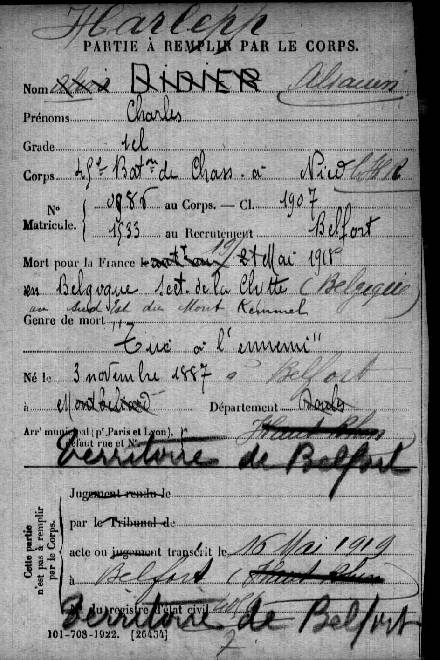 Harlepp
PARTIE À REMPLIR PAR LE CORPS.
Nom alias DIDIER Alsacien
Prénoms Charles
Grade
Corps 49e Batm de Chass. à Pied
N° Matricule. au Corps. — Cl. 1907
1533 au Recrutement Belfort
Mort pour la France le 19/ Mai 1918
en Belgique Sect. de la Clytte (Belgique)
au sud Est du Mont Kemmel
Genre de mort
Tué à l'ennemi"
Né le 3 novembre 1887 à Belfort
à Montbéliard Département Doubs
Arrt municipal (pr. Paris et Lyon), à défaut rue et N°. (Haut Rhin)
Territoire de Belfort
Cette partie n'est pas à remplir par le Corps.
Jugement rendu le
par le Tribunal de
acte ou jugement transcrit le 16 Mai 1919
à Belfort (Haut Rhin)
N° du registre d'état civil
Territoire de Belfort
101-708-1922. [26434]